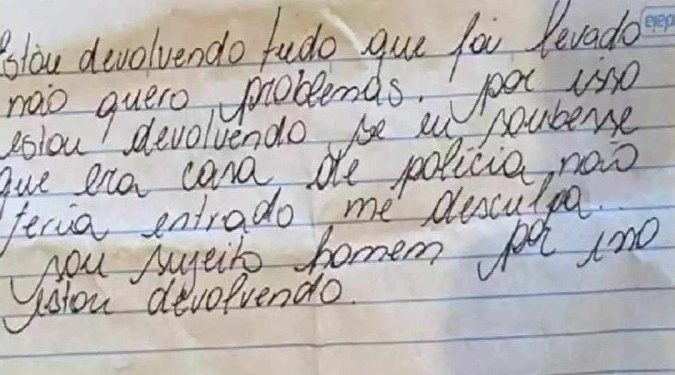 estou devolvendo tudo que foi levado
não quero problemas. por isso
estou devolvendo se eu soubesse
que era casa de policia não
teria entrado me desculpa..
sou sujeito homem por isso
estou devolvendo.